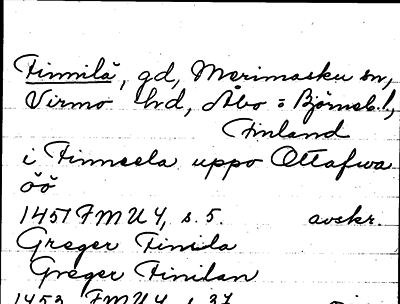 Finnilä, gd, Merimasku sn,
Virmo hd, Åbo = Björneb. l,
Finland
i Finneela uppo Ottafwa
öö
1451 FMU 4, s. 5. avskr.
Greger Finila
Greger Finilan
1452 FMU 4, s. 37